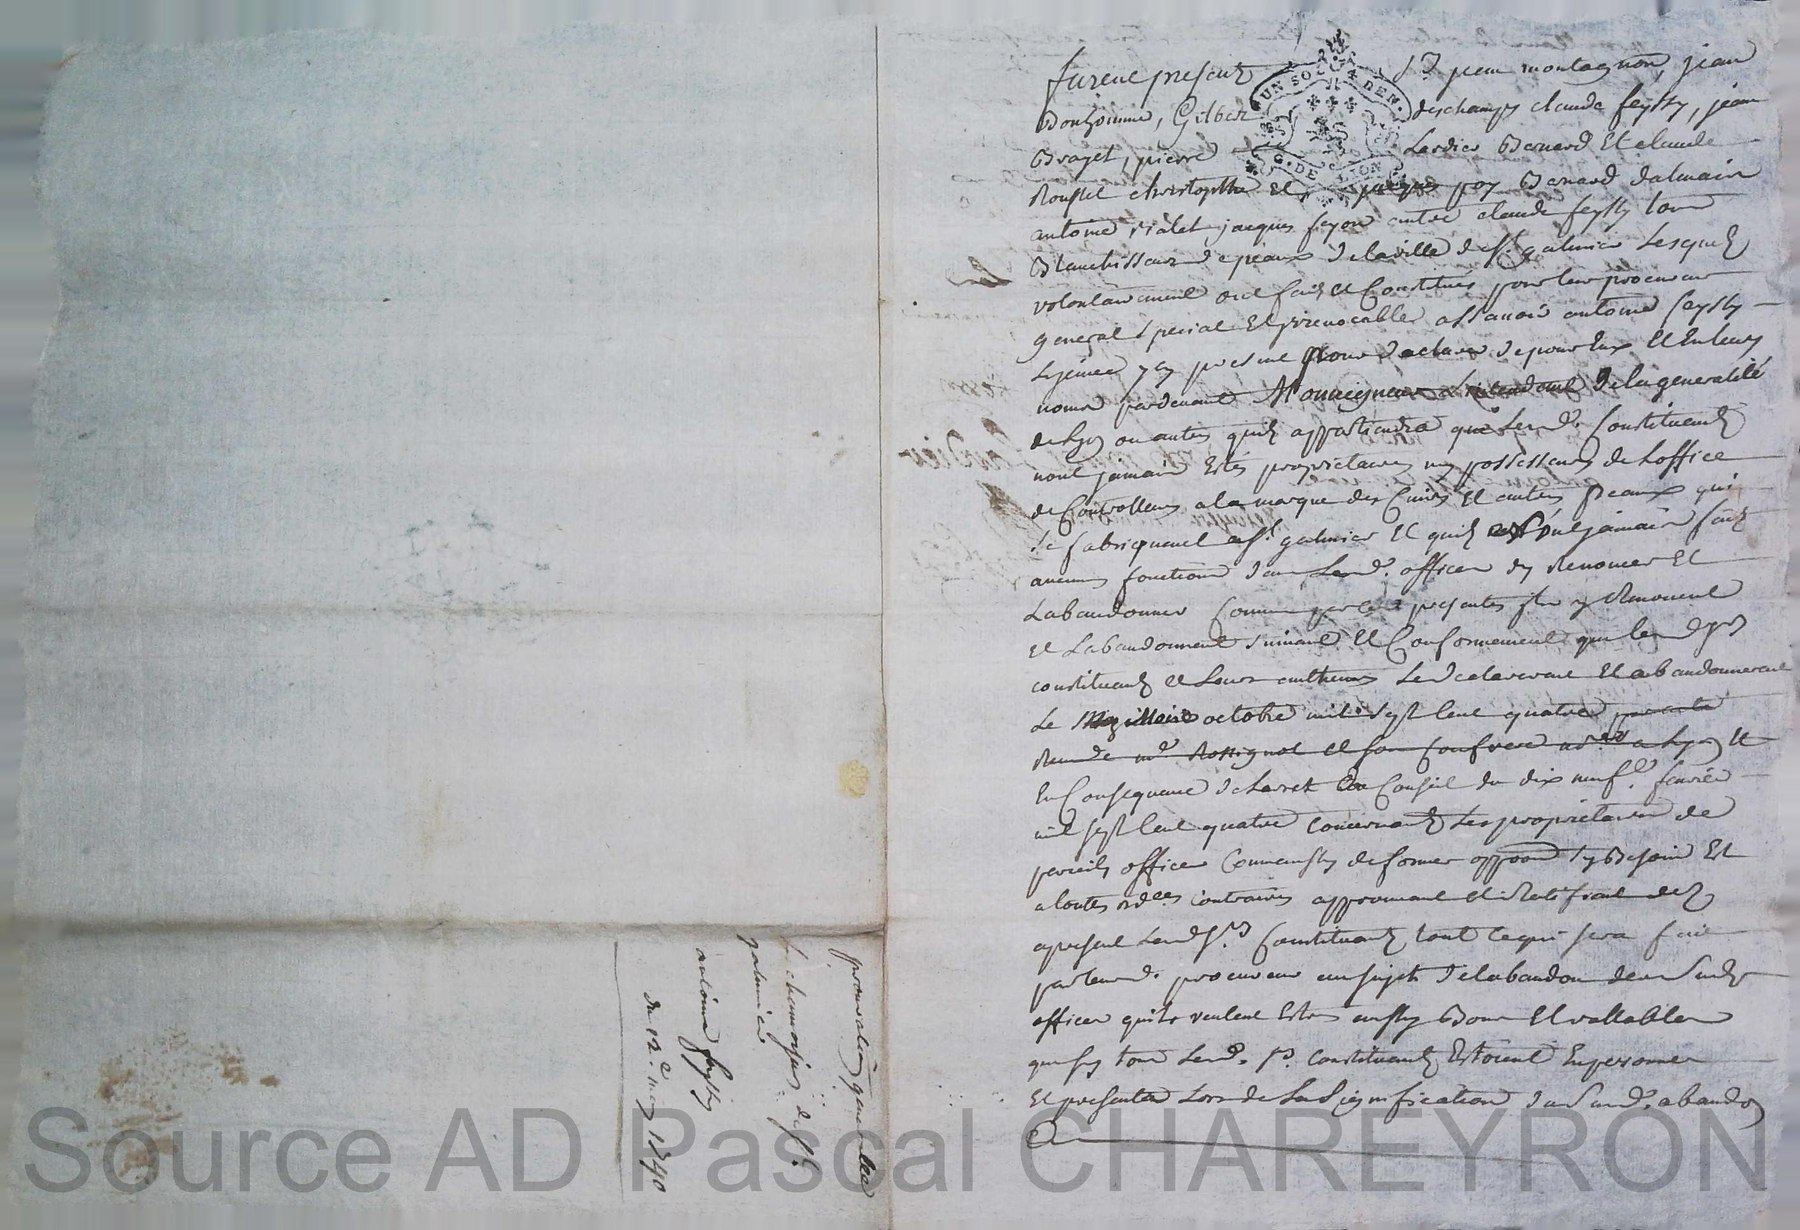 furent presents Srs pierre montagnon, jean
Bonhomme, Gilbert deschamps claude feysty, jean
Brajet, pierre Lardier Benard Et claude
Roussel christophle Et jacques poy Benard dalmais
antoine vialet jacques fayon autre claude feysty tous
Blanchisseurs de peaux de la ville de st galmier Lesquels
volontairement ont fait et Constitué pour leur procureur
general special Et yrrevocable assavoir antoine feysty
Le jeune pour declarer de pour Eux Et En leurs
noms pardevant Monseigneur L'intendant de la generalité
de Lyon ou autres quil appartiendra que Lesd. Constituants
nont jamais Estés proprietaires ny possesseurs de Loffice
de Controlleurs a la marque des Cuirs Et autres peaux qui
se fabriquent a st galmier Et quils nont jamais fait
aucunes fonctions dans Lesd. offices dy Renoncer Et
Labandonner Comme par ces presentes ils y Renoncent
et Labandonnent suivant Et Conformement que lesd Srs
constituants et Leurs autheurs Le declarerent Et abandonnerent
Le octobre mil sept cent quatre
Rossignol et son Confrere a Lyon Et
En Consequence de Larret du Conseil du dix neufe. fevrier
mil sept cent quatre concernant Les proprietaires de
pareils offices Comme aussy de former oppoon sy Besoin Est
a toutes ordces contraires approuvant Et Ratifiant dez
apresent Lesd Srs Constituants tout ce qui sera fait
par leurd. procureur au sujet de labandon desd susd
offices quils veulent Estre aussy Bon Et vallable
que sy tous Lesd. Srs Constituants Estoient En personnes
Et presents Lors de La Signification du susd. abandon
procuration passée
chamoiseurs de st
galmier
antoine feysty
du 12e. may 1740
UN SOL 4 DEN.
G. DE LION
Source AD Pascal CHAREYRON